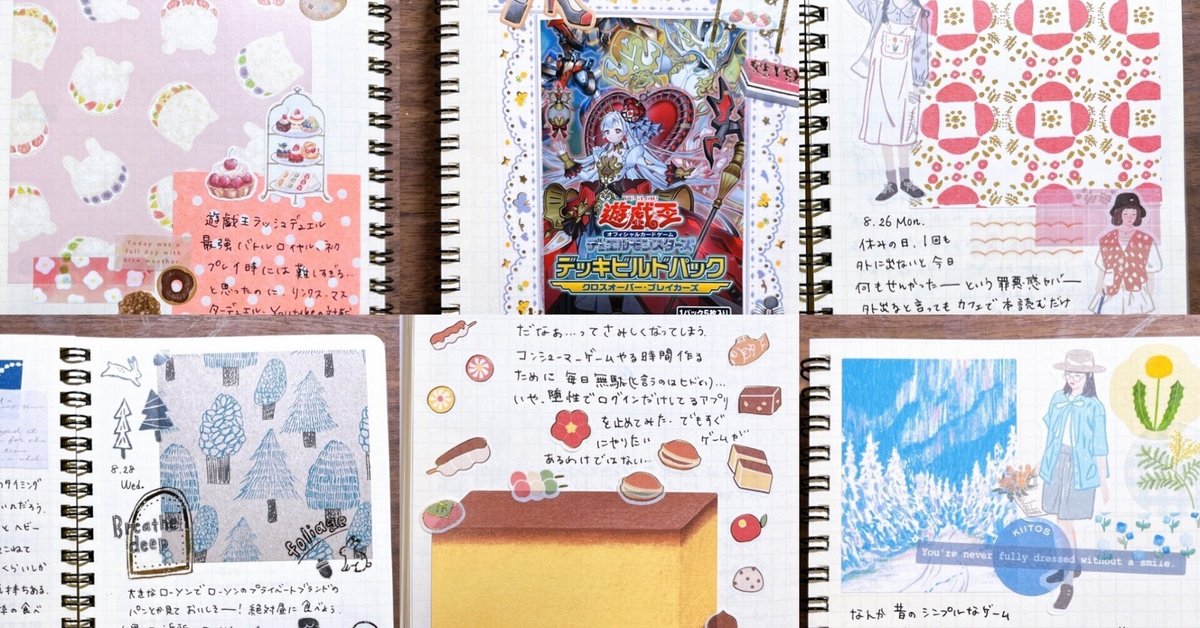 遊戯王ラッシュデュエル
最強バトルロイヤル、初
プレイ時には難しすぎる…
と思ったのに、リンクス、マス
ターデュエル、Youtubeの
Today was a
full day with
nice weather.
遊戯王
オフィシャルカードゲーム
デュエルモンスターズ
デッキビルドパック
クロスオーバー・ブレイカーズ
1パック5枚入り
8.26 Mon.
休みの日、1回も
外に出ないと今日
何もせんかったーという罪悪感
外出ると言ってもカフェで本読むだけ
8.28
Wed.
Breathe
deep
foliage
大きなローソンでローソンのプライベートブランドの
パンとか見ておいしそー!絶対昼に食べよう、
だなぁ…ってさみしくなってしまう。
コンシューマーゲームやる時間作る
ために毎日無駄(と言うのはヒドい)…
いや、惰性でログインだけしてるアプリ
を止めてみた。でもすぐ
にやりたいゲームが
あるわけではない…
KIITOS
You're never fully dressed without a smile.
なんか昔のシンプルなゲーム